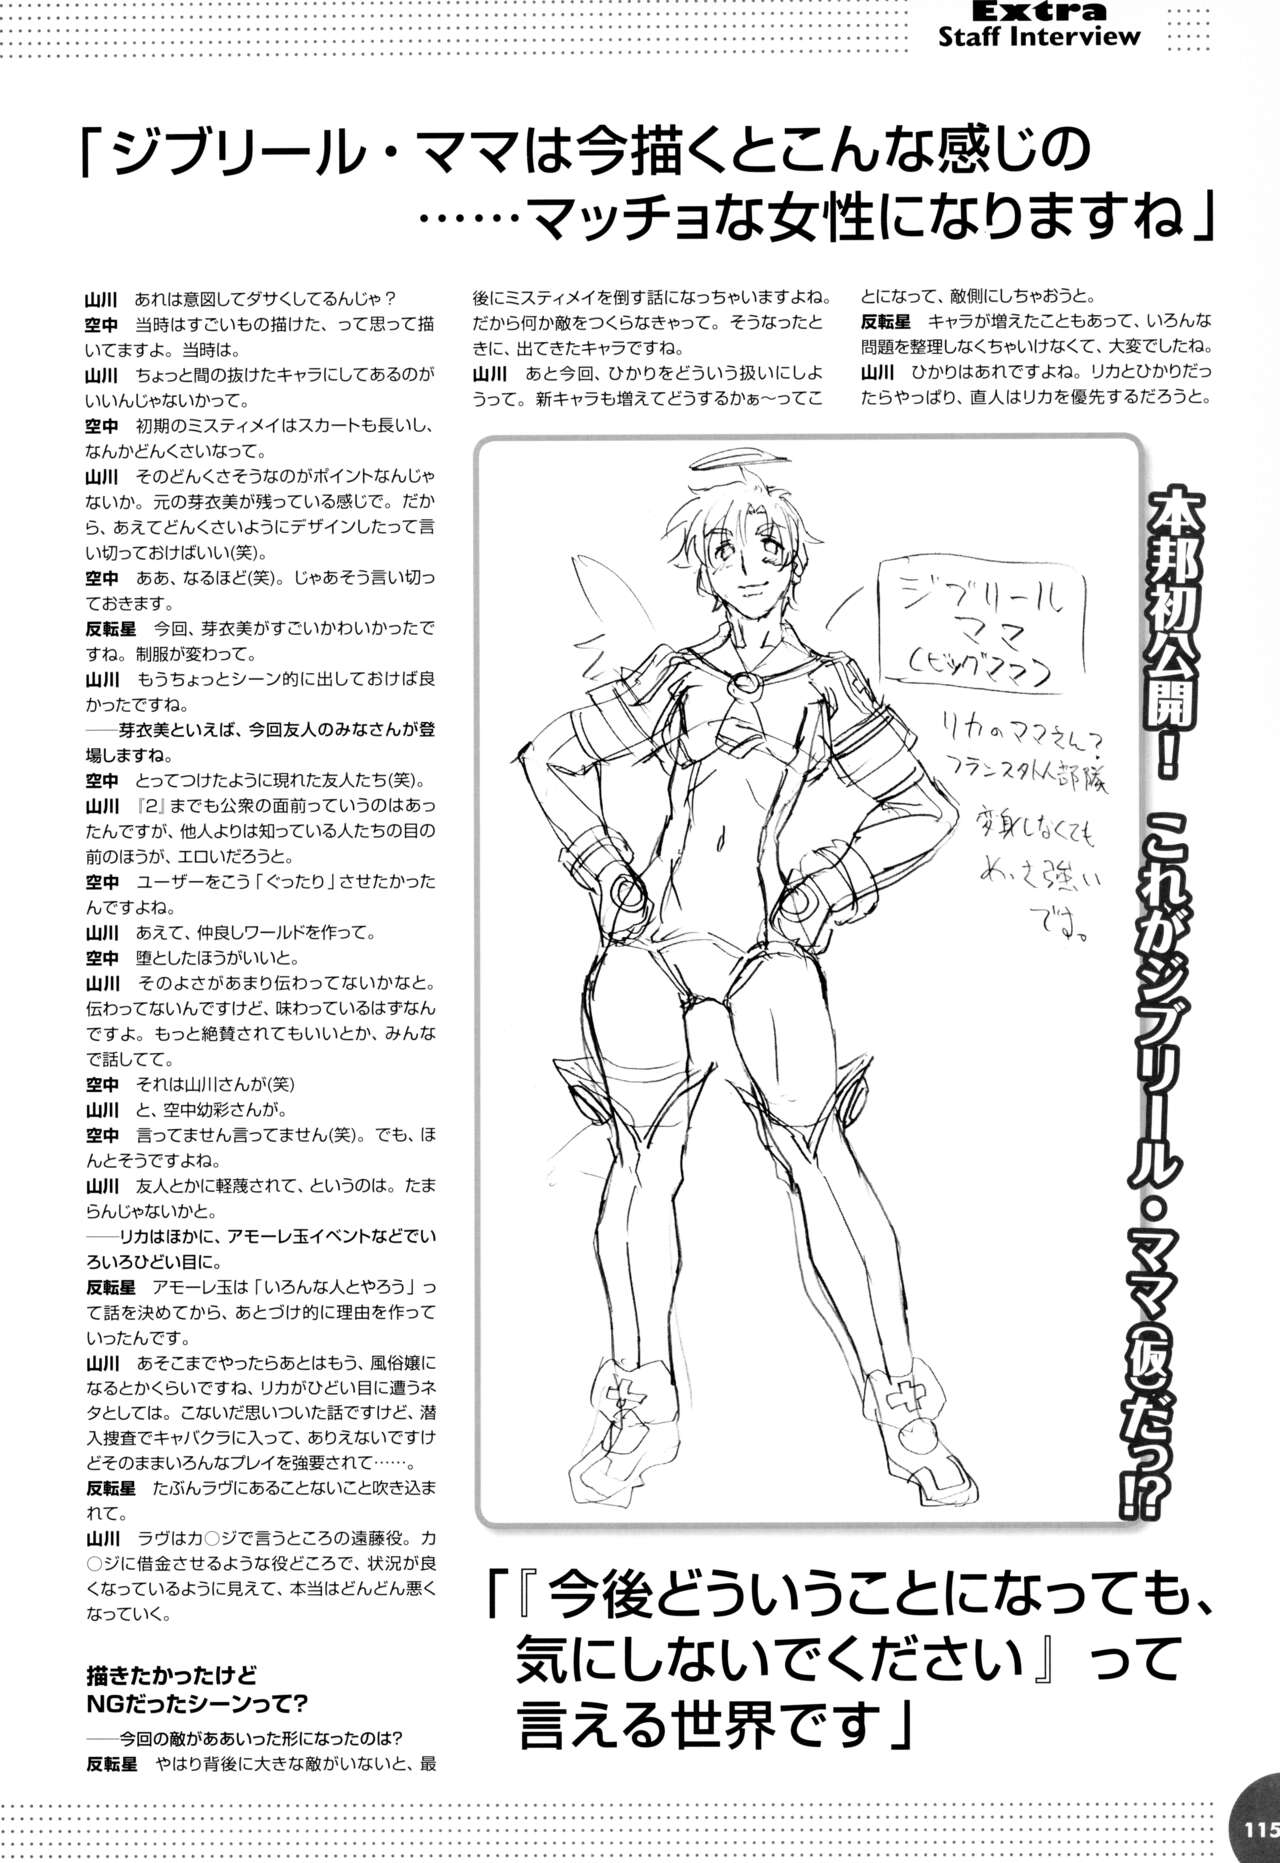 Extra
Staff Interview
「ジブリール・ママは今描くとこんな感じの
……マッチョな女性になりますね」
山川　あれは意図してダサくしてるんじゃ？
空中　当時はすごいもの描けた、って思って描
いてますよ。当時は。
山川　ちょっと間の抜けたキャラにしてあるのが
いいんじゃないかって。
空中　初期のミスティメイはスカートも長いし、
なんかどんくさいなって。
山川　そのどんくさそうなのがポイントなんじゃ
ないか。元の芽衣美が残っている感じで。だか
ら、あえてどんくさいようにデザインしたって言
い切っておけばいい(笑)。
空中　ああ、なるほど(笑)。じゃあそう言い切っ
ておきます。
反転星　今回、芽衣美がすごいかわいかったで
すね。制服が変わって。
山川　もうちょっとシーン的に出しておけば良
かったですね。
──芽衣美といえば、今回友人のみなさんが登
場しますね。
空中　とってつけたように現れた友人たち(笑)。
山川　『2』までも公衆の面前っていうのはあっ
たんですが、他人よりは知っている人たちの目の
前のほうが、エロいだろうと。
空中　ユーザーをこう「ぐったり」させたかった
んですよね。
山川　あえて、仲良しワールドを作って。
空中　堕としたほうがいいと。
山川　そのよさがあまり伝わってないかなと。
伝わってないんですけど、味わっているはずなん
ですよ。もっと絶賛されてもいいとか、みんな
で話してて。
空中　それは山川さんが(笑)
山川　と、空中幼彩さんが。
空中　言ってません言ってません(笑)。でも、ほ
んとそうですよね。
山川　友人とかに軽蔑されて、というのは。たま
らんじゃないかと。
──リカはほかに、アモーレ玉イベントなどでい
ろいろひどい目に。
反転星　アモーレ玉は「いろんな人とやろう」っ
て話を決めてから、あとづけ的に理由を作って
いったんです。
山川　あそこまでやったらあとはもう、風俗嬢に
なるとかくらいですね、リカがひどい目に遭うネ
タとしては。こないだ思いついた話ですけど、潜
入捜査でキャバクラに入って、ありえないですけ
どそのままいろんなプレイを強要されて……。
反転星　たぶんラヴにあることないこと吹き込ま
れて。
山川　ラヴはカ○ジで言うところの遠藤役。カ
○ジに借金させるような役どころで、状況が良
くなっているように見えて、本当はどんどん悪く
なっていく。
描きたかったけど
NGだったシーンって？
──今回の敵がああいった形になったのは？
反転星　やはり背後に大きな敵がいないと、最
後にミスティメイを倒す話になっちゃいますよね。
だから何か敵をつくらなきゃって。そうなったと
きに、出てきたキャラですね。
山川　あと今回、ひかりをどういう扱いにしよ
うって。新キャラも増えてどうするかぁ～ってこ
とになって、敵側にしちゃおうと。
反転星　キャラが増えたこともあって、いろんな
問題を整理しなくちゃいけなくて、大変でしたね。
山川　ひかりはあれですよね。リカとひかりだっ
たらやっぱり、直人はリカを優先するだろうと。
ジブリール
ママ
(ビッグママ)
リカのママさん？
フランス外人部隊
変身しなくても
わ、さ強い
です。
本邦初公開！　これがジブリール・ママ(仮)だっ!?
「『今後どういうことになっても、
気にしないでください』って
言える世界です」
115